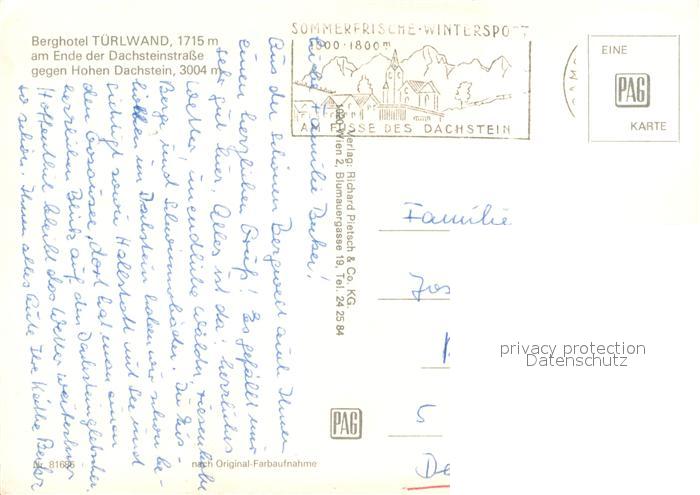 Berghotel TÜRLWAND, 1715 m
am Ende der Dachsteinstraße
gegen Hohen Dachstein, 3004 m
SOMMERFRISCHE-WINTERSPORT
800-1800 m
AM FUSSE DES DACHSTEIN
EINE
PAG
KARTE
Liebe Familie Becker!
Aus der schönen Bergwelt auch Ihnen
einen herzlichen Gruß! Es gefällt mir
sehr gut hier. Alles ist da: herrliches
Wetter, unendliche Wälder, riesenhohe
Berge und Schwimmbäder. Die Eis-
höhlen im Dachstein haben wir schon be-
sichtigt sowie Hallstatt mit See und
den Gosausee, dort hat man einen
herrlichen Blick auf den Dachsteingletscher.
Hoffentlich bleibt das Wetter weiterhin
so schön. Ihnen alles Gute Ihre Käthe Becker
Verlag: Richard Pietsch & Co. KG.
1020 Wien 2, Blumauergasse 19, Tel. 24 25 84
Familie
Jos
5
De
privacy protection
Datenschutz
PAG
Nr. 81686
nach Original-Farbaufnahme